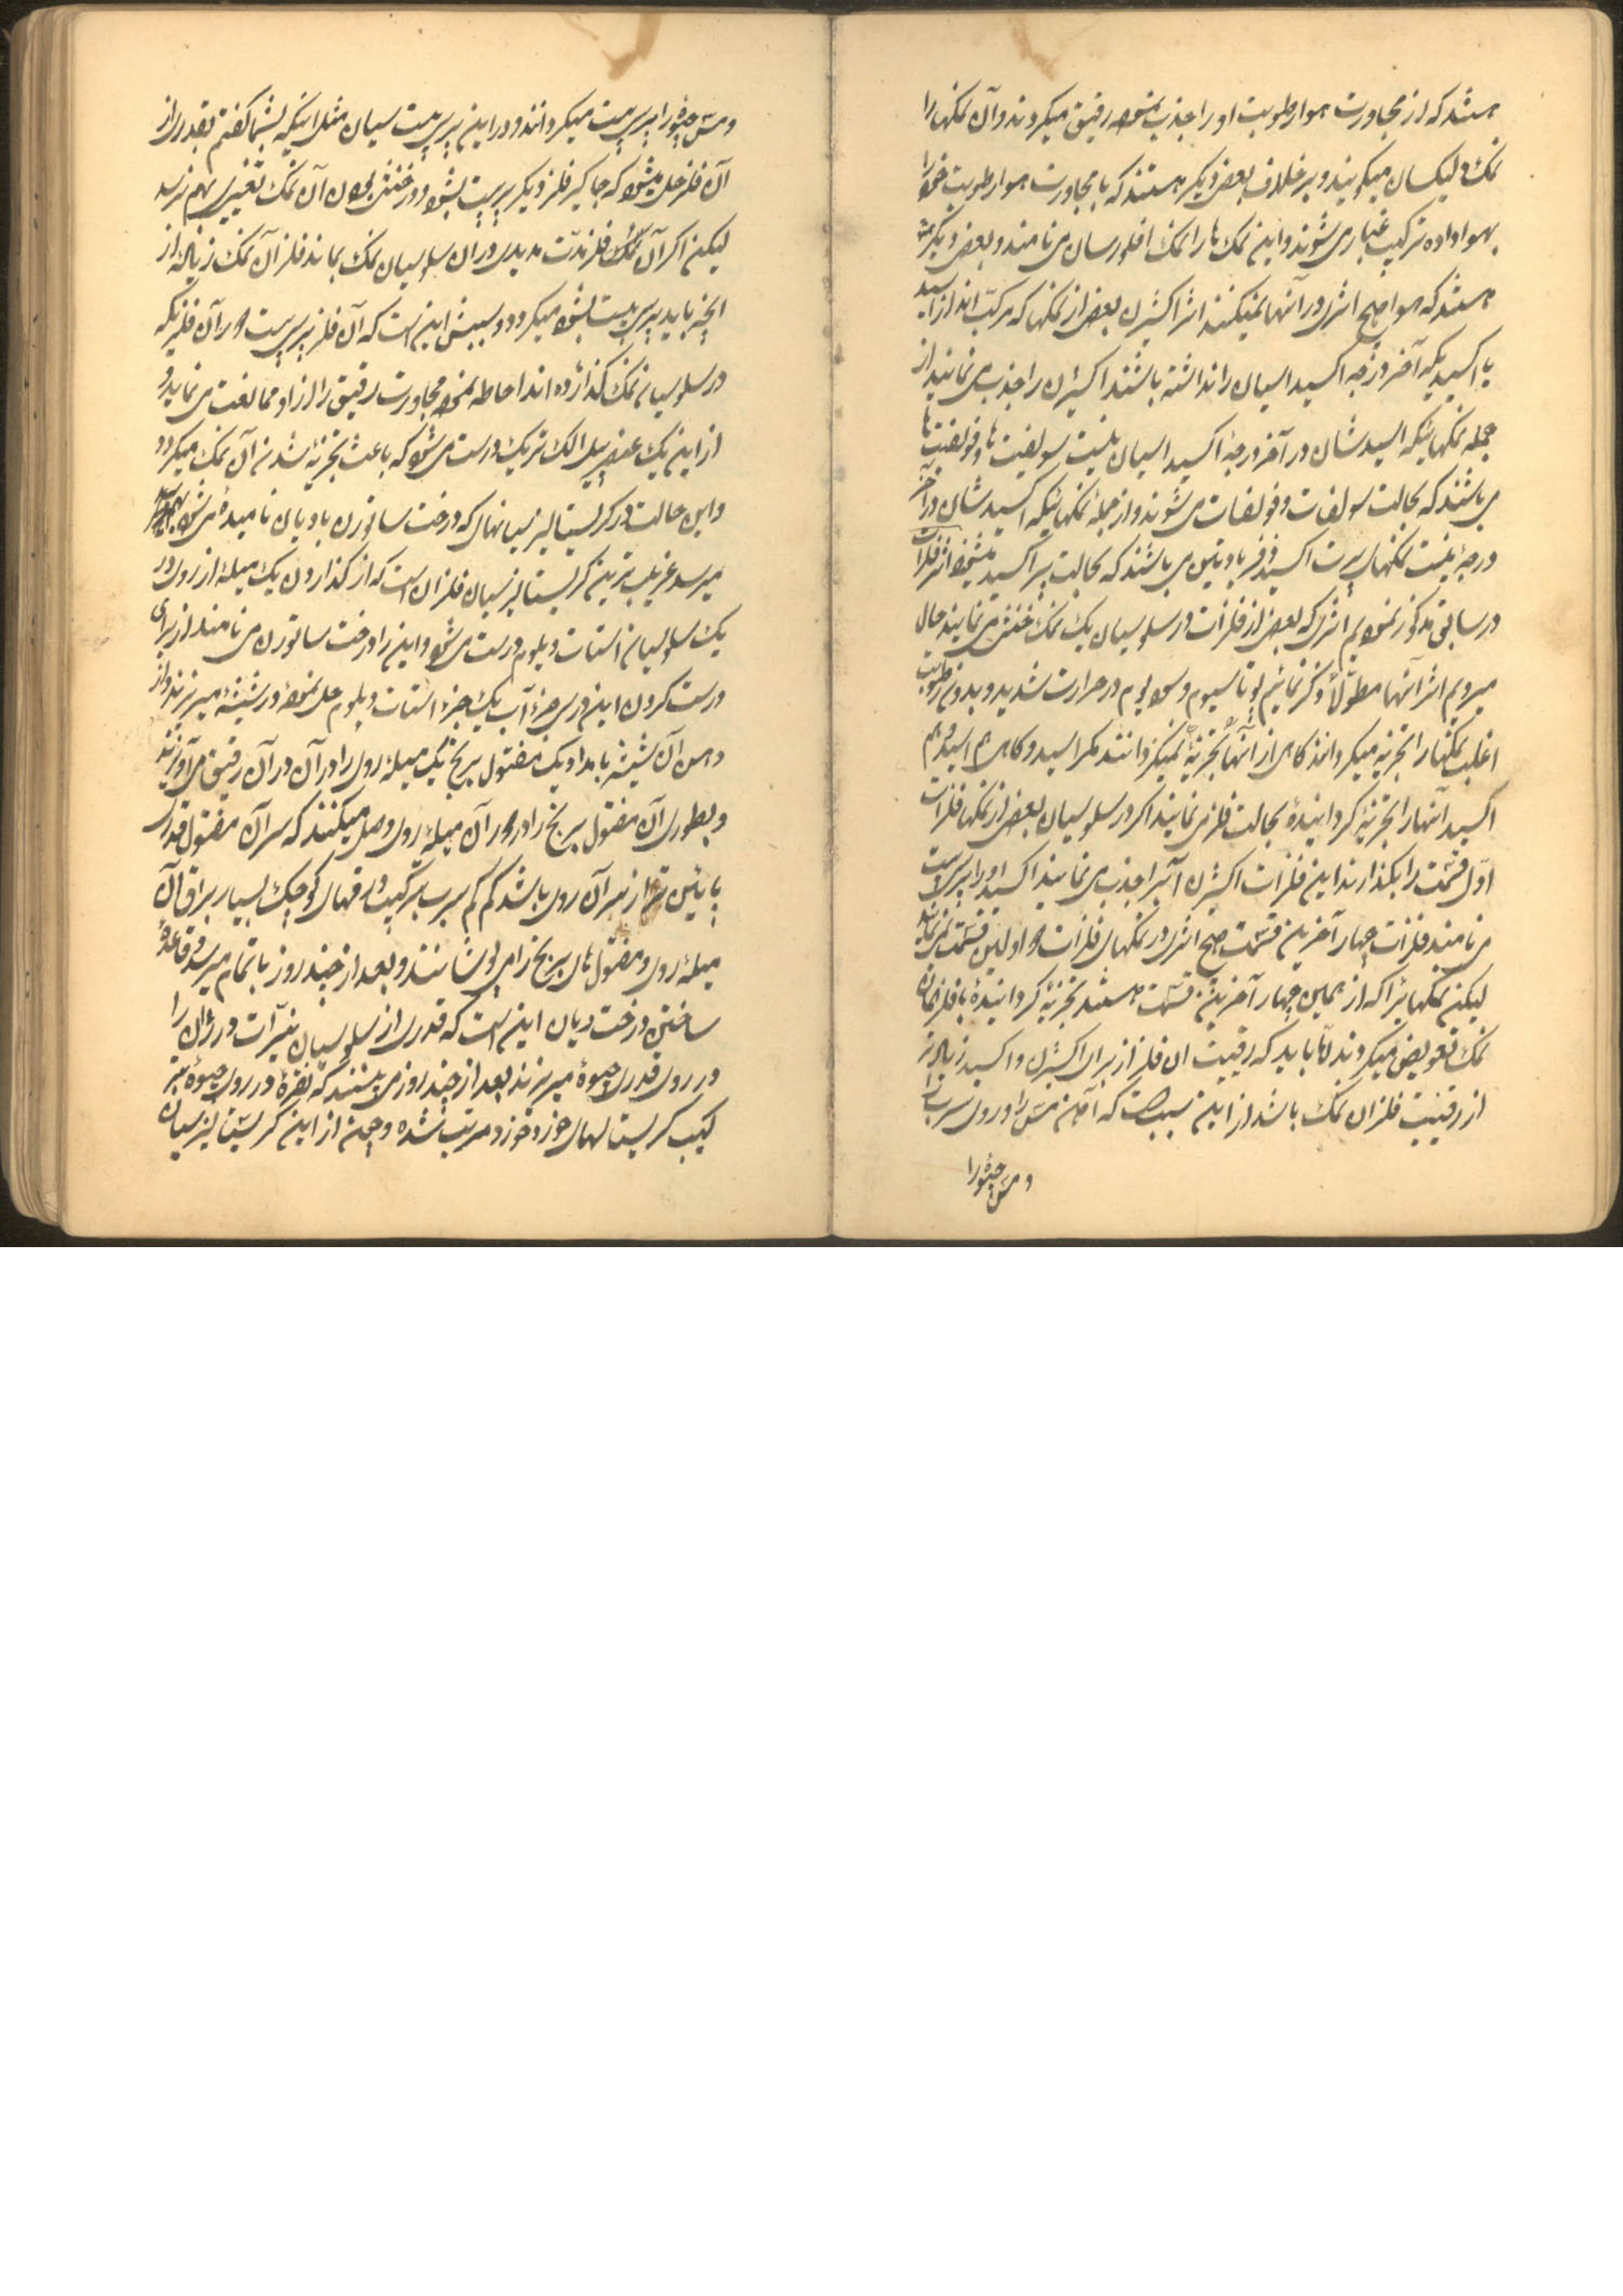 هستند که از مجاورت هوا رطوبت او را جذب نموده رقیق میگردند و آن نمکها را
نمک دلیکسان میگویند و بر خلاف بعض دیگر هستند که با مجاورت هوا رطوبت خود را
بهوا داده ترکیب غباری میشوند و این نمک ها را نمک افلورسان می نامند و بعض دیگر
هستند که هوا هیچ اثری در آنها نمیکند اثر اکسیژن بعض از نمکها که مرکب اند از اسید
یا اکسیدیکه آخر درجه اکسیداسیان را نداشته باشند اکسیژن را جذب می نمایند از
جمله نمکهائیکه اسیدشان در آخر درجهٔ اکسیداسیان نیست سولفیت ها و فوسفیت ها
می باشند که بحالت سولفات و فوسفات می شوند و از جملهٔ نمکهائیکه اکسیدشان در آخر
درجه نیست نمکهای پرت اکسید فر یا دتین می باشند که بحالت پر اکسید میشوند اثر فلزات
در سابق مذکور نمودیم اثری که بعض از فلزات در سلوسیان یک نمک خنثی می نمایند حال
میرویم اثر آنها مطولاً ذکر نمائیم پوتاسیوم و سودیوم در حرارت شدید و بدون رطوبت
اغلب نمکها را تجزیه میگردانند گاهی از آنها تجزیه نمیگردانند مگر اسید و گاهی هم اسید و هم
اکسید آنها را تجزیه گردانیده بحالت فلز می نمایند اگر در سلوسیان بعض از نمکها فلزات
اول قسمت را بگذارند این فلزات اکسیژن آب را جذب می نمایند اکسید او را پرسپیت
می نامند فلزات چهار آخرین قسمت هیچ اثری در نمکهای فلزات دو اولین قسمت نمی نمایند
لیکن نمکهائیرا که از همین چهار آخرین قسمت هستند تجزیه گردانیده با فلز همان
نمک تعویض میگردند اما باید که رقیبت ان فلز از برای اکسیژن و اکسید زیاده تر
از رقیبت فلز ان نمک باشد از این سبب است که آهن مس را و روی سرب را
و مس جیوه را
و مس جیوه را پرسپیت میگردانند و در این پرسپیت سیان مثل اینکه بشما گفتم بقدری از
آن فلز حل میشود که جا گیر فلز دیگر پرسپیت بشود و در خنثی بودن آن نمک تغییری بهم نرسد
لیکن اگر آن نمک و فلز مدت مدیدی در ان سلوسیان نمک بماند فلز آن نمک زیاده از
انچه باید پرسپیت بشود میگردد و سببش این است که آن فلز پرسپیت دور آن فلزیکه
در سلوسیان نمک گذارده اند احاطه نموده مجاورت رقیق را از او ممانعت می نماید و
از این یک عنصر پیل الکتریک درست می شود که باعث تجزیه شدن آن نمک میگردد
و این حالت در کریستالیزسیانهای که درخت ساتورن یا دیان نامیده می شود
میرسد غریب ترین کریستالیزسیان فلزان است که از گذاردن یک میلهٔ از روی در
یک سلوسیان استات دپلوم درست می شود و این را درخت ساتورن می نامند از برای
درست کردن این در سی جزء آب یک جزء استات دپلوم حل نموده در شیشه میریزند و از
دهن آن شیشه با مداد یک مفتول برنج یک میلهٔ روی را در آن در آن رقیق می آویزند
و بطوری آن مفتول برنج را دور آن میلهٔ روی وصل میکنند که سر آن مفتول قدری
پائین تر از سر آن روی باشد کم کم سرب بترکیب ورقهای کوچک بسیار براق آن
میلهٔ روی و مفتول های برنج را می پوشانند و بعد از چند روز با تمام میرسد و قاعدهٔ
ساختن درخت دیان این است که قدری از سلوسیان نیترات در ژان را
در روی قدری جیوه میریزند بعد از چند روز می بینند که نقره در روی جیوه بتر
کیب کریستالهای خورد خورد مرتب شده و چون از این کریستالیزسیان